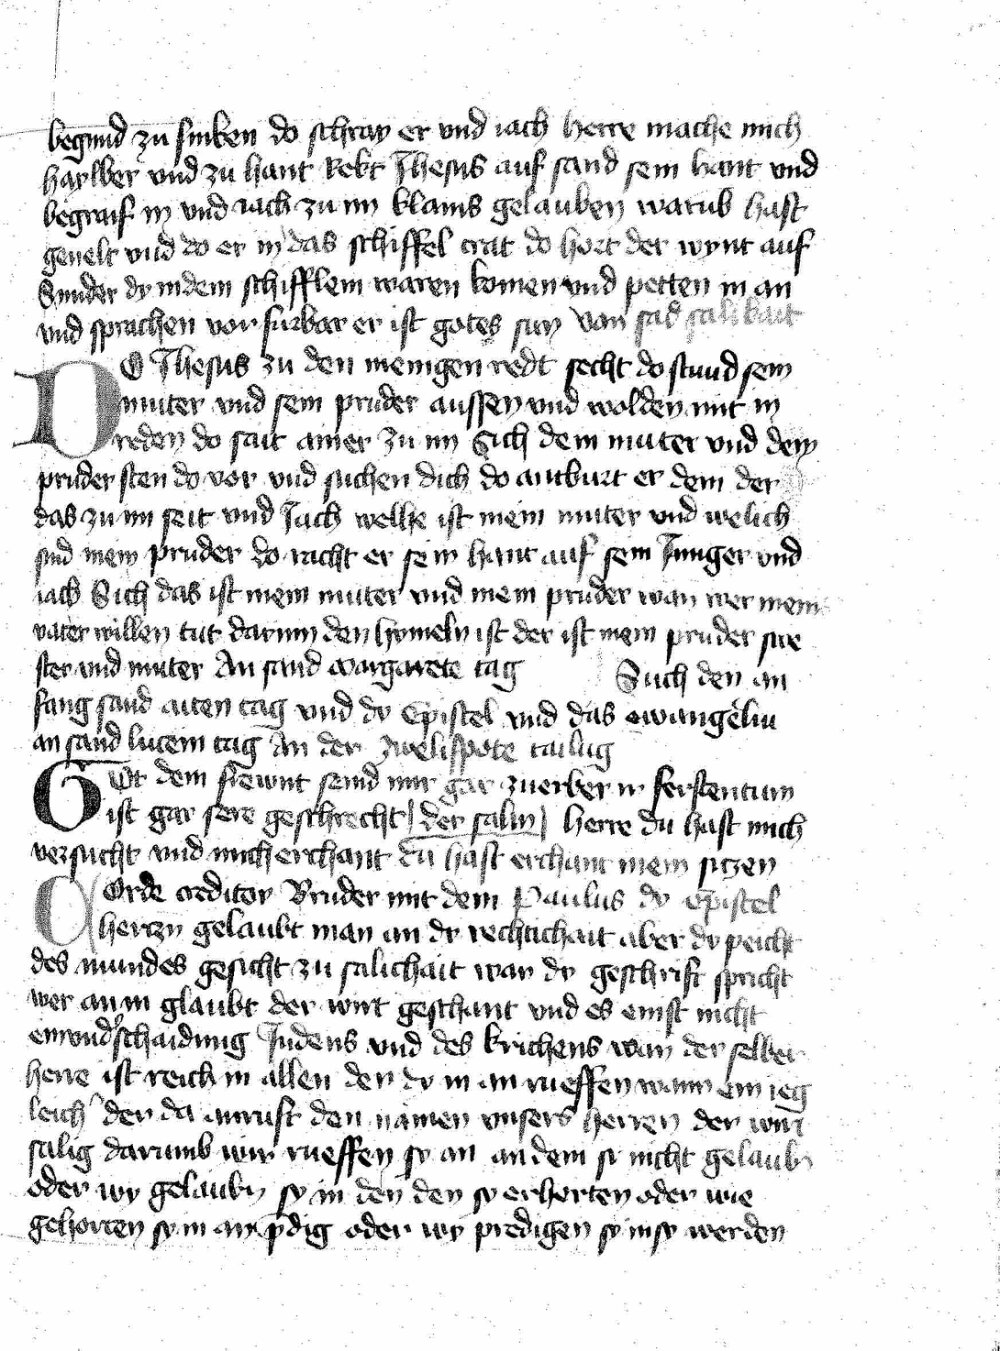 begund zu sinken do schray er und iach herre mache mich
haylber und zu hant Rekt Jhesus auf sand sein hant und
begraif in und iach zu im klains gelauben warub hast
und do er in das schiffel trat do hort der wynt auf
Sunder dy in dem schifflein waren komen und petten in an
und sprachen vor furbar er ist gotes sun von
DO Jhesus zu den menigen redt secht do stund sein
muter und sein pruder aussen und wolden mit in
reden do sait ainer zu im Sich dein muter und dein
pruder sten do vor und suchen dich do antburt er dem der
das zu im seit und Jach welhe ist mein muter und welich
sind mein pruder do racht er sein hant auf sein Junger und
iach Sich das ist mein muter und mein pruder wan wer meins
vater willen tut darinn den hymeln ist der ist mein pruder swe
ster und muter An sand Margarete tag Such den an
fang sand aiten tag und dy Epistel und das ewangeliu
an sand lucein tag An der zwelifpote tailug
GOt dein frewnt seind mir gar zu erber ir ferstentum
ist gar sere geschrecht der salm herre du hast mich
versucht und mich erchant du hast erchant mein siczen
COrde creditor Bruder mit dem Paulus dy epistel
herczn gelaubt man an dy rechtichait aber dy peicht
des mundes gesicht zu salichait wan dy geschrift spricht
wer an in glaubt der wirt geschant und es einst nicht
ein undschaidung Judens und des krichens wan der selber
herre ist reich in allen den dy in an rueffen wann ein ieg
leich der da anruft den namen unsers herren der wirt
salig darumb wir rueffen sy an an dem sy nicht gelaubn
oder wy gelaubn sy in den den sy erhorten oder wie
gehorten sy in an pdig oder wy predigen sy in sy werden